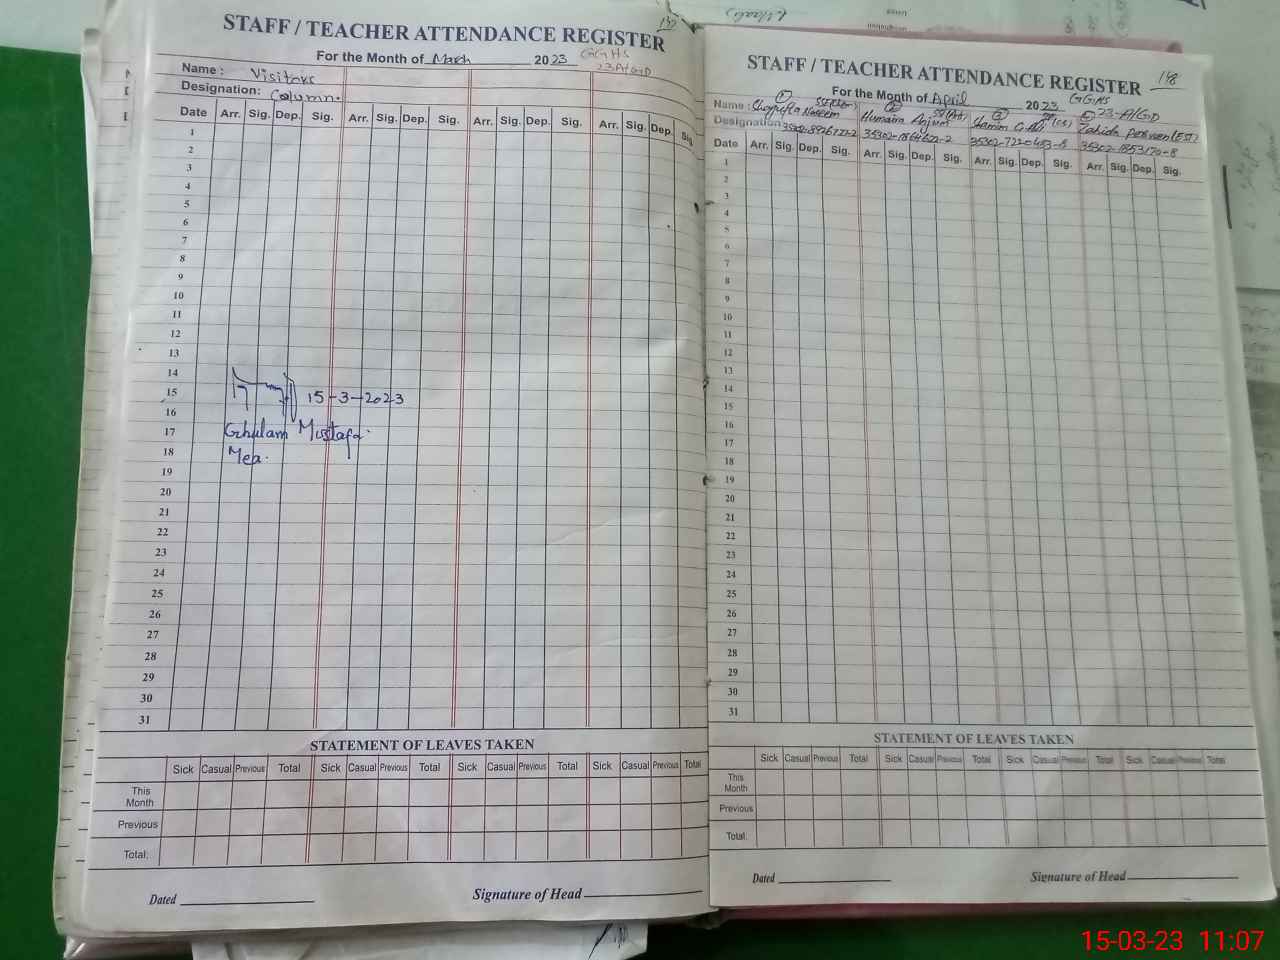 STAFF / TEACHER ATTENDANCE REGISTER
For the Month of March 2023 GGHS
23A/GD
Name : Visitors
Designation: Column.
Date Arr. Sig. Dep. Sig. Arr. Sig. Dep. Sig. Arr. Sig. Dep. Sig. Arr. Sig. Dep. Sig
1
2
3
4
5
6
7
8
9
10
11
12
13
14
15 15-3-2023
16
17 Ghulam Mustafa.
18 Mea.
19
20
21
22
23
24
25
26
27
28
29
30
31
STATEMENT OF LEAVES TAKEN
Sick Casual Previous Total Sick Casual Previous Total Sick Casual Previous Total Sick Casual Previous Total
This
Month
Previous
Total:
Dated Signature of Head
148
STAFF / TEACHER ATTENDANCE REGISTER
For the Month of April 2023 GGHS
23-A/GD
Name : Naseem Humaira Anjum Zahida Perveen (EST)
Designation 35302-1864622-2 35302-7220483-8 35302-1853170-8
Date Arr. Sig. Dep. Sig. Arr. Sig. Dep. Sig. Arr. Sig. Dep. Sig. Arr. Sig. Dep. Sig.
1
2
3
4
5
6
7
8
9
10
11
12
13
14
15
16
17
18
19
20
21
22
23
24
25
26
27
28
29
30
31
STATEMENT OF LEAVES TAKEN
Sick Casual Previous Total Sick Casual Previous Total Sick Casual Previous Total Sick Casual Previous Total
This
Month
Previous
Total:
Dated Signature of Head
15-03-23 11:07